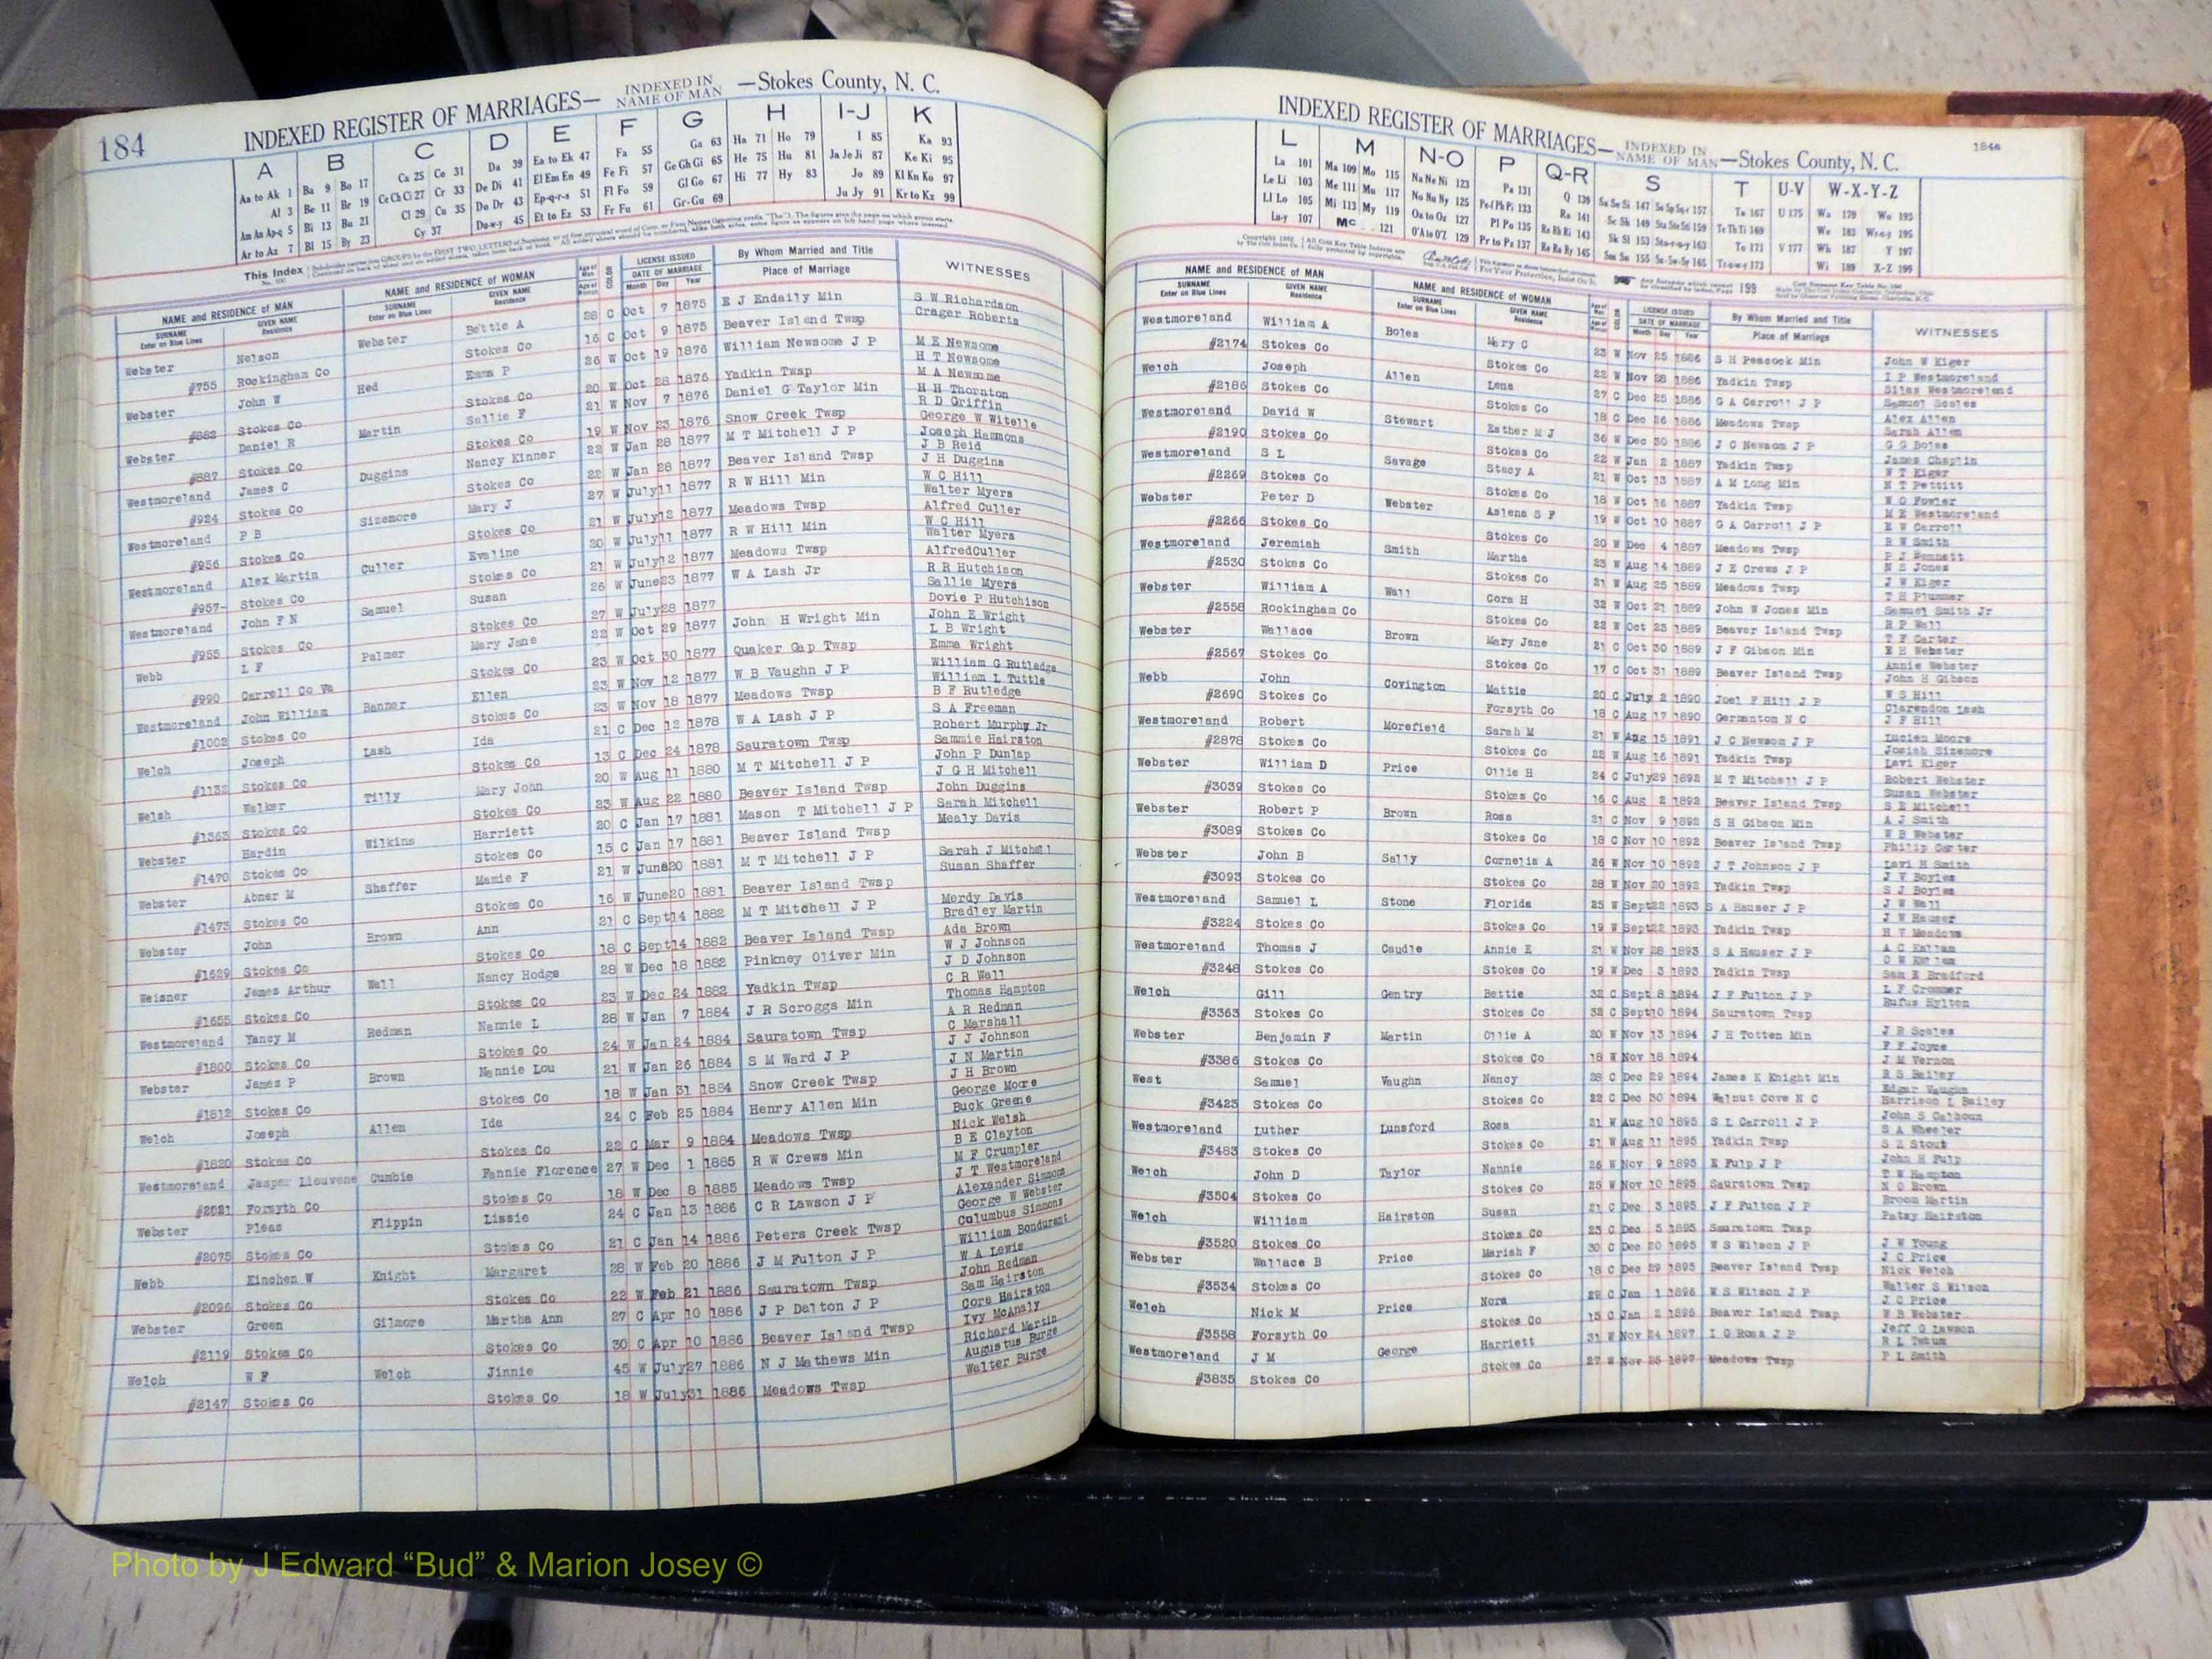 184
INDEXED REGISTER OF MARRIAGES— INDEXED IN NAME OF MAN —Stokes County, N. C.
A B C D E F G H I-J K
Aa to Ak 1 Ba 9 Bo 17 Ca 25 Co 31 Da 39 Ea to Ek 47 Fa 55 Ga 63 Ha 71 Ho 79 I 85 Ka 93
Al 3 Be 11 Br 19 Ce Ch Ci 27 Cr 33 De Di 41 El Em En 49 Fe Fi 57 Ge Gh Gi 65 He 75 Hu 81 Ja Je Ji 87 Ke Ki 95
Am An Ap-q 5 Bi 13 Bu 21 Cl 29 Cu 35 Do Dr 43 Ep-q-r-s 51 Fl Fo 59 Gl Go 67 Hi 77 Hy 83 Jo 89 Kl Kn Ko 97
Ar to Az 7 Bl 15 By 23 Cy 37 Du-w-y 45 Et to Ez 53 Fr Fu 61 Gr-Gu 69 Ju Jy 91 Kr to Kz 99
This Index
NAME and RESIDENCE of MAN NAME and RESIDENCE of WOMAN LICENSE ISSUED By Whom Married and Title WITNESSES
SURNAME Enter on Blue Lines GIVEN NAME Residence SURNAME Enter on Blue Lines GIVEN NAME Residence DATE OF MARRIAGE Month Day Year Place of Marriage
Webster Nelson Webster Bettie A 28 C Oct 7 1875 E J Endaily Min S W Richardson
#755 Rockingham Co Stokes Co 16 C Oct 9 1875 Beaver Island Twsp Crager Roberts
Webster John W Hed Emma P 26 W Oct 19 1876 William Newsome J P M E Newsome
H T Newsome
#882 Stokes Co Stokes Co 20 W Oct 28 1876 Yadkin Twsp M A Newsome
Webster Daniel R Martin Sallie F 21 W Nov 7 1876 Daniel G Taylor Min H H Thornton
R D Griffin
#887 Stokes Co Stokes Co 19 W Nov 23 1876 Snow Creek Twsp George W Witelle
Westmoreland James C Duggins Nancy Kinner 22 W Jan 28 1877 M T Mitchell J P Joseph Hammons
J B Reid
#924 Stokes Co Stokes Co 22 W Jan 28 1877 Beaver Island Twsp J H Duggins
Westmoreland P B Sizemore Mary J 27 W July 11 1877 R W Hill Min W C Hill
Walter Myers
#956 Stokes Co Stokes Co 21 W July 12 1877 Meadows Twsp Alfred Culler
Westmoreland Alex Martin Culler Eveline 20 W July 11 1877 R W Hill Min W C Hill
Walter Myers
#957- Stokes Co Stokes Co 21 W July 12 1877 Meadows Twsp AlfredCuller
Westmoreland John F N Samuel Susan 26 W June 23 1877 W A Lash Jr R R Hutchison
Sallie Myers
#955 Stokes Co Stokes Co 27 W July 28 1877 Dovie P Hutchison
Webb L F Palmer Mary Jane 22 W Oct 29 1877 John H Wright Min John E Wright
L B Wright
#990 Carroll Co Va Stokes Co 23 W Oct 30 1877 Quaker Gap Twsp Emma Wright
Westmoreland John William Banner Ellen 23 W Nov 12 1877 W B Vaughn J P William G Rutledge
William L Tuttle
#1002 Stokes Co Stokes Co 23 W Nov 18 1877 Meadows Twsp B F Rutledge
Welch Joseph Lash Ida 21 C Dec 12 1878 W A Lash J P S A Freeman
Robert Murphy Jr
#1132 Stokes Co Stokes Co 13 C Dec 24 1878 Sauratown Twsp Sammie Hairston
Welsh Walker Tilly Mary John 20 W Aug 11 1880 M T Mitchell J P John P Dunlap
J G H Mitchell
#1363 Stokes Co Stokes Co 23 W Aug 22 1880 Beaver Island Twsp John Duggins
Webster Hardin Wilkins Harriett 20 C Jan 17 1881 Mason T Mitchell J P Sarah Mitchell
Mealy Davis
#1470 Stokes Co Stokes Co 15 C Jan 17 1881 Beaver Island Twsp
Webster Abner M Shaffer Mamie F 21 W June 20 1881 M T Mitchell J P Sarah J Mitchell
Susan Shaffer
#1473 Stokes Co Stokes Co 16 W June 20 1881 Beaver Island Twsp
Webster John Brown Ann 21 C Sept 14 1882 M T Mitchell J P Merdy Davis
Bradley Martin
#1629 Stokes Co Stokes Co 18 C Sept 14 1882 Beaver Island Twsp Ada Brown
Weisner James Arthur Wall Nancy Hodge 28 W Dec 18 1882 Pinkney Oliver Min W J Johnson
J D Johnson
#1655 Stokes Co Stokes Co 23 W Dec 24 1882 Yadkin Twsp C R Wall
Westmoreland Yancy M Redman Nannie L 28 W Jan 7 1884 J R Scroggs Min Thomas Hampton
A R Redman
#1800 Stokes Co Stokes Co 24 W Jan 24 1884 Sauratown Twsp C Marshall
Webster James P Brown Nannie Lou 21 W Jan 26 1884 S M Ward J P J J Johnson
J N Martin
#1812 Stokes Co Stokes Co 18 W Jan 31 1884 Snow Creek Twsp J H Brown
Welch Joseph Allen Ida 24 C Feb 25 1884 Henry Allen Min George Moore
Buck Greene
#1820 Stokes Co Stokes Co 22 C Mar 9 1884 Meadows Twsp Nick Welsh
Westmoreland Jasper Lieuvene Cumbie Fannie Florence 27 W Dec 1 1885 R W Crews Min B E Clayton
M F Crumpler
#2021 Forsyth Co Stokes Co 18 W Dec 8 1885 Meadows Twsp J T Westmoreland
Webster Pleas Flippin Lissie 24 C Jan 13 1886 C R Lawson J P Alexander Simmons
George W Webster
#2075 Stokes Co Stokes Co 21 C Jan 14 1886 Peters Creek Twsp Columbus Simmons
Webb Kinchen W Knight Margaret 28 W Feb 20 1886 J M Fulton J P William Bondurant
W A Lewis
#2096 Stokes Co Stokes Co 22 W Feb 21 1886 Sauratown Twsp John Redman
Webster Green Gilmore Martha Ann 27 C Apr 10 1886 J P Dalton J P Sam Hairston
Cora Hairston
#2119 Stokes Co Stokes Co 30 C Apr 10 1886 Beaver Island Twsp Ivy McAnaly
Welch W F Welch Jinnie 45 W July 27 1886 N J Mathews Min Richard Martin
Augustus Burge
#2147 Stokes Co Stokes Co 18 W July 31 1886 Meadows Twsp Walter Burge
184a
INDEXED REGISTER OF MARRIAGES— INDEXED IN NAME OF MAN —Stokes County, N. C.
L M N-O P Q-R S T U-V W-X-Y-Z
La 101 Ma 109 Mo 115 Na Ne Ni 123 Pa 131 Q 139 Ta 167 U 175 Wa 179 Wo 193
Le Li 103 Me 111 Mu 117 No Nu Ny 125 Ra 141 Sc Sh 149 Te Th Ti 169 We 183 Wr-u-y 195
Ll Lo 105 Mi 113 My 119 Oa to Oz 127 Pl Po 135 Re Rh Ri 143 Sk Sl 153 To 171 V 177 Wh 187 Y 197
Lu-y 107 Mc 121 O'A to O'Z 129 Pr to Pz 137 Ro Ru Ry 145 Tr-u-w-y 173 Wi 189 X-Z 199
NAME and RESIDENCE of MAN NAME and RESIDENCE of WOMAN LICENSE ISSUED By Whom Married and Title WITNESSES
SURNAME Enter on Blue Lines GIVEN NAME Residence SURNAME Enter on Blue Lines GIVEN NAME Residence DATE OF MARRIAGE Month Day Year Place of Marriage
Westmoreland William A Boles Mary C 23 W Nov 25 1886 S H Peacock Min John W Kiger
I P Westmoreland
#2174 Stokes Co Stokes Co 22 W Nov 28 1886 Yadkin Twsp Silas Westmoreland
Welch Joseph Allen Lena 27 C Dec 25 1886 G A Carroll J P Samuel Scales
Alex Allen
#2186 Stokes Co Stokes Co 18 C Dec 26 1886 Meadows Twsp Sarah Allen
Westmoreland David W Stewart Esther M J 36 W Dec 30 1886 J C Newsom J P G G Boles
James Chaplin
#2190 Stokes Co Stokes Co 22 W Jan 2 1887 Yadkin Twsp W T Kiger
Westmoreland S L Savage Stacy A 21 W Oct 13 1887 A M Long Min N T Pettitt
W O Fowler
#2269 Stokes Co Stokes Co 18 W Oct 16 1887 Yadkin Twsp M E Westmoreland
Webster Peter D Webster Aslena S F 19 W Oct 10 1887 G A Carroll J P E W Carroll
R W Smith
#2266 Stokes Co Stokes Co 20 W Dec 4 1887 Meadows Twsp P J Bennett
Westmoreland Jeremiah Smith Martha 23 W Aug 14 1889 J E Crews J P N S Jones
J W Kiger
#2530 Stokes Co Stokes Co 21 W Aug 25 1889 Meadows Twsp T H Plummer
Webster William A Wall Cora H 32 W Oct 21 1889 John W Jones Min Samuel Smith Jr
R P Wall
#2558 Rockingham Co Stokes Co 22 W Oct 23 1889 Beaver Island Twsp T F Carter
Webster Wallace Brown Mary Jane 21 C Oct 30 1889 J F Gibson Min E H Webster
Annie Webster
#2567 Stokes Co Stokes Co 17 C Oct 31 1889 Beaver Island Twsp John H Gibson
Webb John Covington Mattie 20 C July 2 1890 Joel F Hill J P W S Hill
Clarendon Lash
#2690 Stokes Co Forsyth Co 18 C Aug 17 1890 Germanton N C J F Hill
Westmoreland Robert Morefield Sarah M 21 W Aug 15 1891 J C Newsom J P Lucien Moore
Josiah Sizemore
#2878 Stokes Co Stokes Co 22 W Aug 16 1891 Yadkin Twsp Levi Kiger
Webster William D Price Ollie H 24 C July 29 1892 M T Mitchell J P Robert Webster
Susan Webster
#3039 Stokes Co Stokes Co 16 C Aug 2 1892 Beaver Island Twsp S E Mitchell
Webster Robert P Brown Rosa 21 C Nov 9 1892 S H Gibson Min A J Smith
W B Webster
#3089 Stokes Co Stokes Co 18 C Nov 10 1892 Beaver Island Twsp Philip Carter
Webster John B Sally Cornelia A 26 W Nov 10 1892 J T Johnson J P Levi H Smith
J V Boyles
#3093 Stokes Co Stokes Co 28 W Nov 20 1892 Yadkin Twsp S J Boyles
Westmoreland Samuel L Stone Florida 25 W Sept 22 1893 S A Hauser J P J W Wall
J W Hauser
#3224 Stokes Co Stokes Co 19 W Sept 22 1893 Yadkin Twsp H V Meadows
Westmoreland Thomas J Caudle Annie E 21 W Nov 28 1893 S A Hauser J P
#3248 Stokes Co Stokes Co 19 W Dec 3 1893 Yadkin Twsp Sam E Bradford
Welch Gill Gentry Bettie 32 C Sept 8 1894 J F Fulton J P L F Crommer
Rufus Hylton
#3363 Stokes Co Stokes Co 32 C Sept 10 1894 Sauratown Twsp
Webster Benjamin F Martin Ollie A 20 W Nov 13 1894 J H Totten Min J R Scales
F F Joyce
#3386 Stokes Co Stokes Co 18 W Nov 18 1894 J M Vernon
West Samuel Vaughn Nancy 28 C Dec 29 1894 James K Knight Min R S Bailey
Edgar Vaughn
#3423 Stokes Co Stokes Co 22 C Dec 30 1894 Walnut Cove N C Harrison L Bailey
Westmoreland Luther Lunsford Rosa 21 W Aug 10 1895 S L Carroll J P John S Calhoun
S A Wheeler
#3483 Stokes Co Stokes Co 21 W Aug 11 1895 Yadkin Twsp S E Stout
Welch John D Taylor Nannie 26 W Nov 9 1895 E Fulp J P John H Fulp
T W Hampton
#3504 Stokes Co Stokes Co 25 W Nov 10 1895 Sauratown Twsp N O Brown
Welch William Hairston Susan 21 C Dec 3 1895 J F Fulton J P Broom Martin
Patsy Hairston
#3520 Stokes Co Stokes Co 23 C Dec 5 1895 Sauratown Twsp
Webster Wallace B Price Mariah F 30 C Dec 20 1895 W S Wilson J P J W Young
J C Price
#3534 Stokes Co Stokes Co 18 C Dec 29 1895 Beaver Island Twsp Nick Welch
Welch Nick M Price Nora 29 C Jan 1 1896 W S Wilson J P Walter S Wilson
J C Price
#3558 Forsyth Co Stokes Co 15 C Jan 2 1896 Beaver Island Twsp W B Webster
Westmoreland J M George Harriett 31 W Nov 24 1897 I G Ross J P Jeff G Lawson
R L Tatum
#3835 Stokes Co Stokes Co 27 W Nov 25 1897 Meadows Twsp P L Smith
Photo by J Edward “Bud” & Marion Josey ©